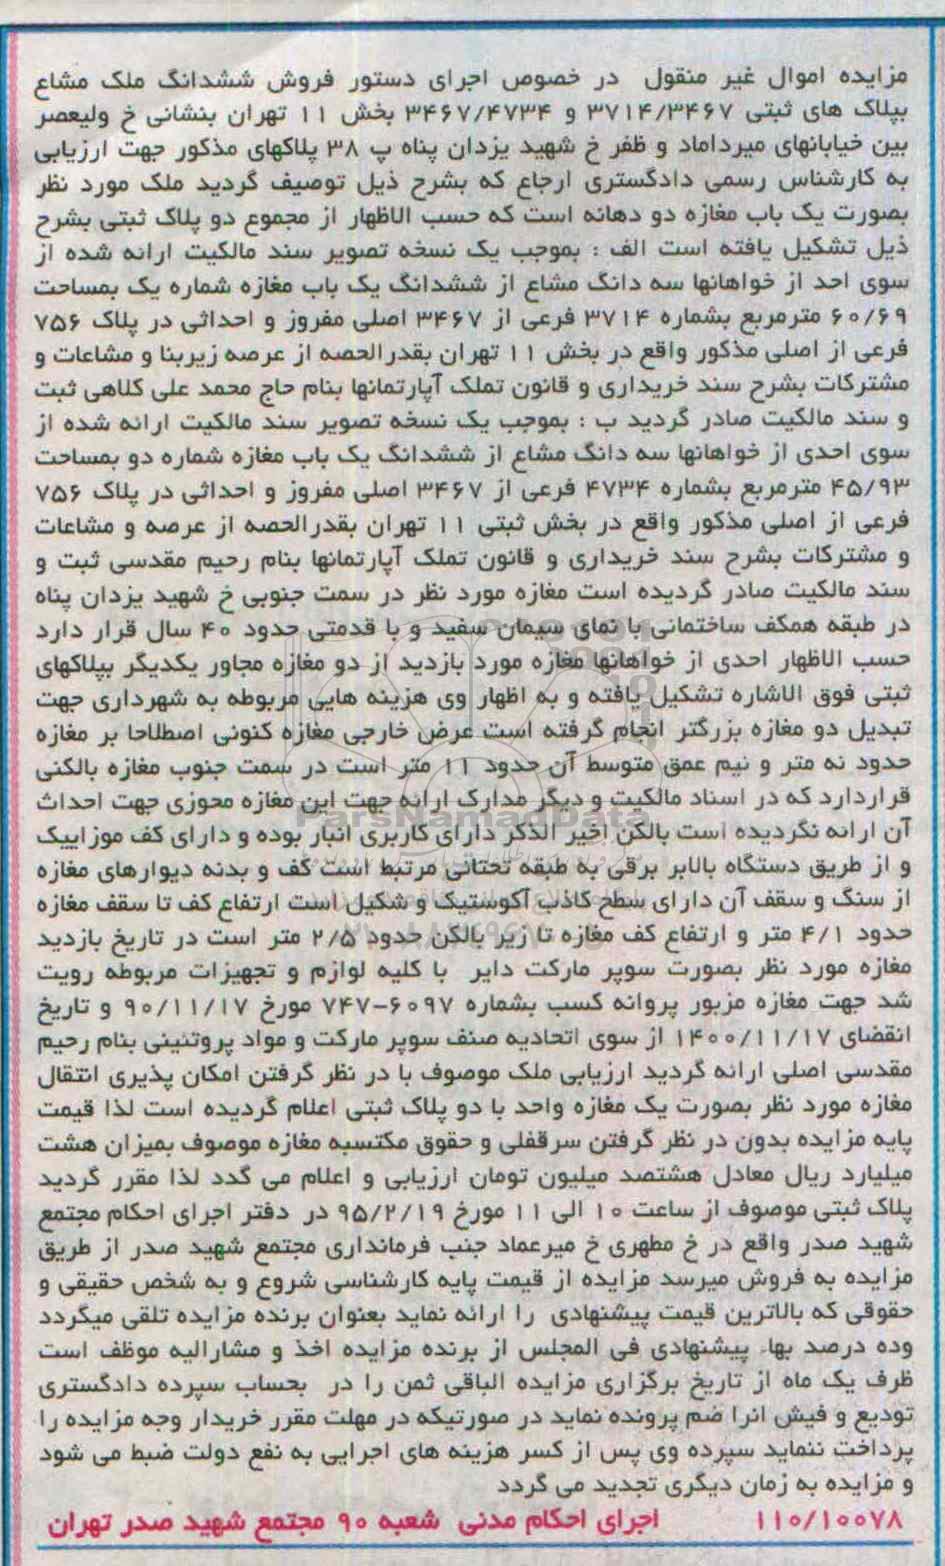 مزایده اموال غیر منقول در خصوص اجرای دستور فروش ششدانگ ملک مشاع
بپلاک های ثبتی ۳۷۱۴/۳۴۶۷ و ۳۴۶۷/۴۷۳۴ بخش ۱۱ تهران بنشانی خ ولیعصر
بین خیابانهای میرداماد و ظفر خ شهید یزدان پناه پ ۳۸ پلاکهای مذکور جهت ارزیابی
به کارشناس رسمی دادگستری ارجاع که بشرح ذیل توصیف گردید ملک مورد نظر
بصورت یک باب مغازه دو دهانه است که حسب الاظهار از مجموع دو پلاک ثبتی بشرح
ذیل تشکیل یافته است الف : بموجب یک نسخه تصویر سند مالکیت ارائه شده از
سوی احد از خواهانها سه دانگ مشاع از ششدانگ یک باب مغازه شماره یک بمساحت
۶۰/۶۹ مترمربع بشماره ۳۷۱۴ فرعی از ۳۴۶۷ اصلی مفروز و احداثی در پلاک ۷۵۶
فرعی از اصلی مذکور واقع در بخش ۱۱ تهران بقدرالحصه از عرصه زیربنا و مشاعات و
مشترکات بشرح سند خریداری و قانون تملک آپارتمانها بنام حاج محمد علی کلاهی ثبت
و سند مالکیت صادر گردید ب : بموجب یک نسخه تصویر سند مالکیت ارائه شده از
سوی احدی از خواهانها سه دانگ مشاع از ششدانگ یک باب مغازه شماره دو بمساحت
۴۵/۹۳ مترمربع بشماره ۴۷۳۴ فرعی از ۳۴۶۷ اصلی مفروز و احداثی در پلاک ۷۵۶
فرعی از اصلی مذکور واقع در بخش ثبتی ۱۱ تهران بقدرالحصه از عرصه و مشاعات
و مشترکات بشرح سند خریداری و قانون تملک آپارتمانها بنام رحیم مقدسی ثبت و
سند مالکیت صادر گردیده است مغازه مورد نظر در سمت جنوبی خ شهید یزدان پناه
در طبقه همکف ساختمانی با نمای سیمان سفید و با قدمتی حدود ۴۰ سال قرار دارد
حسب الاظهار احدی از خواهانها مغازه مورد بازدید از دو مغازه مجاور یکدیگر بپلاکهای
ثبتی فوق الاشاره تشکیل یافته و به اظهار وی هزینه هایی مربوطه به شهرداری جهت
تبدیل دو مغازه بزرگتر انجام گرفته است عرض خارجی مغازه کنونی اصطلاحا بر مغازه
حدود نه متر و نیم عمق متوسط آن حدود ۱۱ متر است در سمت جنوب مغازه بالکنی
قراردارد که در اسناد مالکیت و دیگر مدارک ارائه جهت این مغازه مجوزی جهت احداث
آن ارائه نگردیده است بالکن اخیر الذکر دارای کاربری انبار بوده و دارای کف موزاییک
و از طریق دستگاه بالابر برقی به طبقه تحتانی مرتبط است کف و بدنه دیوارهای مغازه
از سنگ و سقف آن دارای سطح کاذب آکوستیک و شکیل است ارتفاع کف تا سقف مغازه
حدود ۴/۱ متر و ارتفاع کف مغازه تا زیر بالکن حدود ۲/۵ متر است در تاریخ بازدید
مغازه مورد نظر بصورت سوپر مارکت دایر با کلیه لوازم و تجهیزات مربوطه رویت
شد جهت مغازه مزبور پروانه کسب بشماره ۶۰۹۷-۷۴۷ مورخ ۹۰/۱۱/۱۷ و تاریخ
انقضای ۱۴۰۰/۱۱/۱۷ از سوی اتحادیه صنف سوپر مارکت و مواد پروتئینی بنام رحیم
مقدسی اصلی ارائه گردید ارزیابی ملک موصوف با در نظر گرفتن امکان پذیری انتقال
مغازه مورد نظر بصورت یک مغازه واحد با دو پلاک ثبتی اعلام گردیده است لذا قیمت
پایه مزایده بدون در نظر گرفتن سرقفلی و حقوق مکتسبه مغازه موصوف بمیزان هشت
میلیارد ریال معادل هشتصد میلیون تومان ارزیابی و اعلام می گدد لذا مقرر گردید
پلاک ثبتی موصوف از ساعت ۱۰ الی ۱۱ مورخ ۹۵/۲/۱۹ در دفتر اجرای احکام مجتمع
شهید صدر واقع در خ مطهری خ میرعماد جنب فرمانداری مجتمع شهید صدر از طریق
مزایده به فروش میرسد مزایده از قیمت پایه کارشناسی شروع و به شخص حقیقی و
حقوقی که بالاترین قیمت پیشنهادی را ارائه نماید بعنوان برنده مزایده تلقی میگردد
وده درصد بهاء پیشنهادی فی المجلس از برنده مزایده اخذ و مشارالیه موظف است
ظرف یک ماه از تاریخ برگزاری مزایده الباقی ثمن را در بحساب سپرده دادگستری
تودیع و فیش انرا ضم پرونده نماید در صورتیکه در مهلت مقرر خریدار وجه مزایده را
پرداخت ننماید سپرده وی پس از کسر هزینه های اجرایی به نفع دولت ضبط می شود
و مزایده به زمان دیگری تجدید می گردد
۱۱۰/۱۰۰۷۸ اجرای احکام مدنی شعبه ۹۰ مجتمع شهید صدر تهران
ParsNamadData